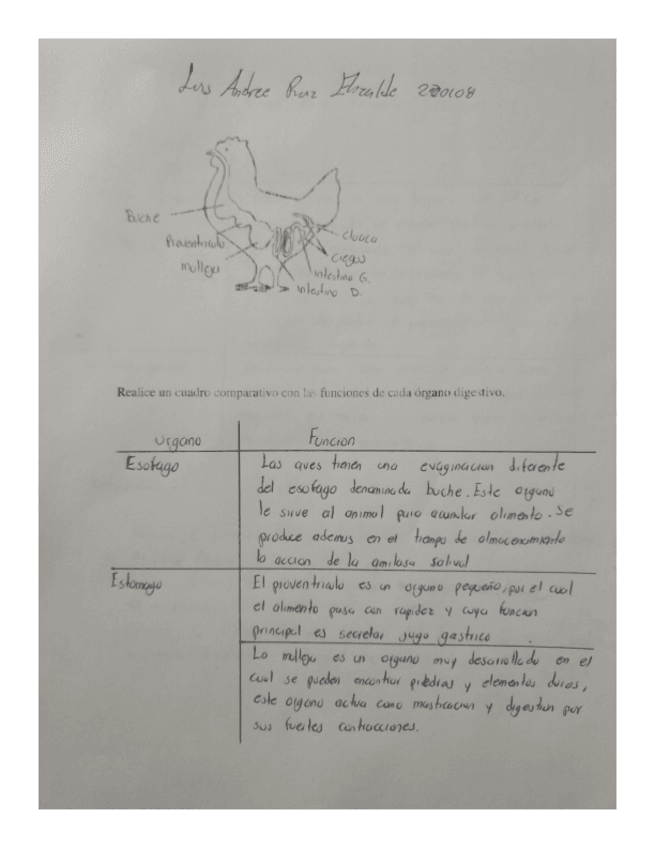 Luis Andree Ruiz Elizalde 220108
Buche
Proventriculo
molleja
cloaca
ciegos
intestino G.
intestino D.
Realice un cuadro comparativo con las funciones de cada órgano digestivo.
Organo Funcion
Esofago
Las aves tienen una evaginacion diferente
del esofago denominada buche. Este organo
le sirve al animal para acumular alimento. Se
produce ademas en el tiempo de almacenamiento
la accion de la amilasa salival
Estomago
El proventriculo es un organo pequeño, por el cual
el alimento pasa con rapidez y cuya funcion
principal es secretar jugo gastrico
La molleja es un organo muy desarrollado en el
cual se pueden encontrar piedras y elementos duros,
este organo actua como masticacion y digestion por
sus fuertes contracciones.